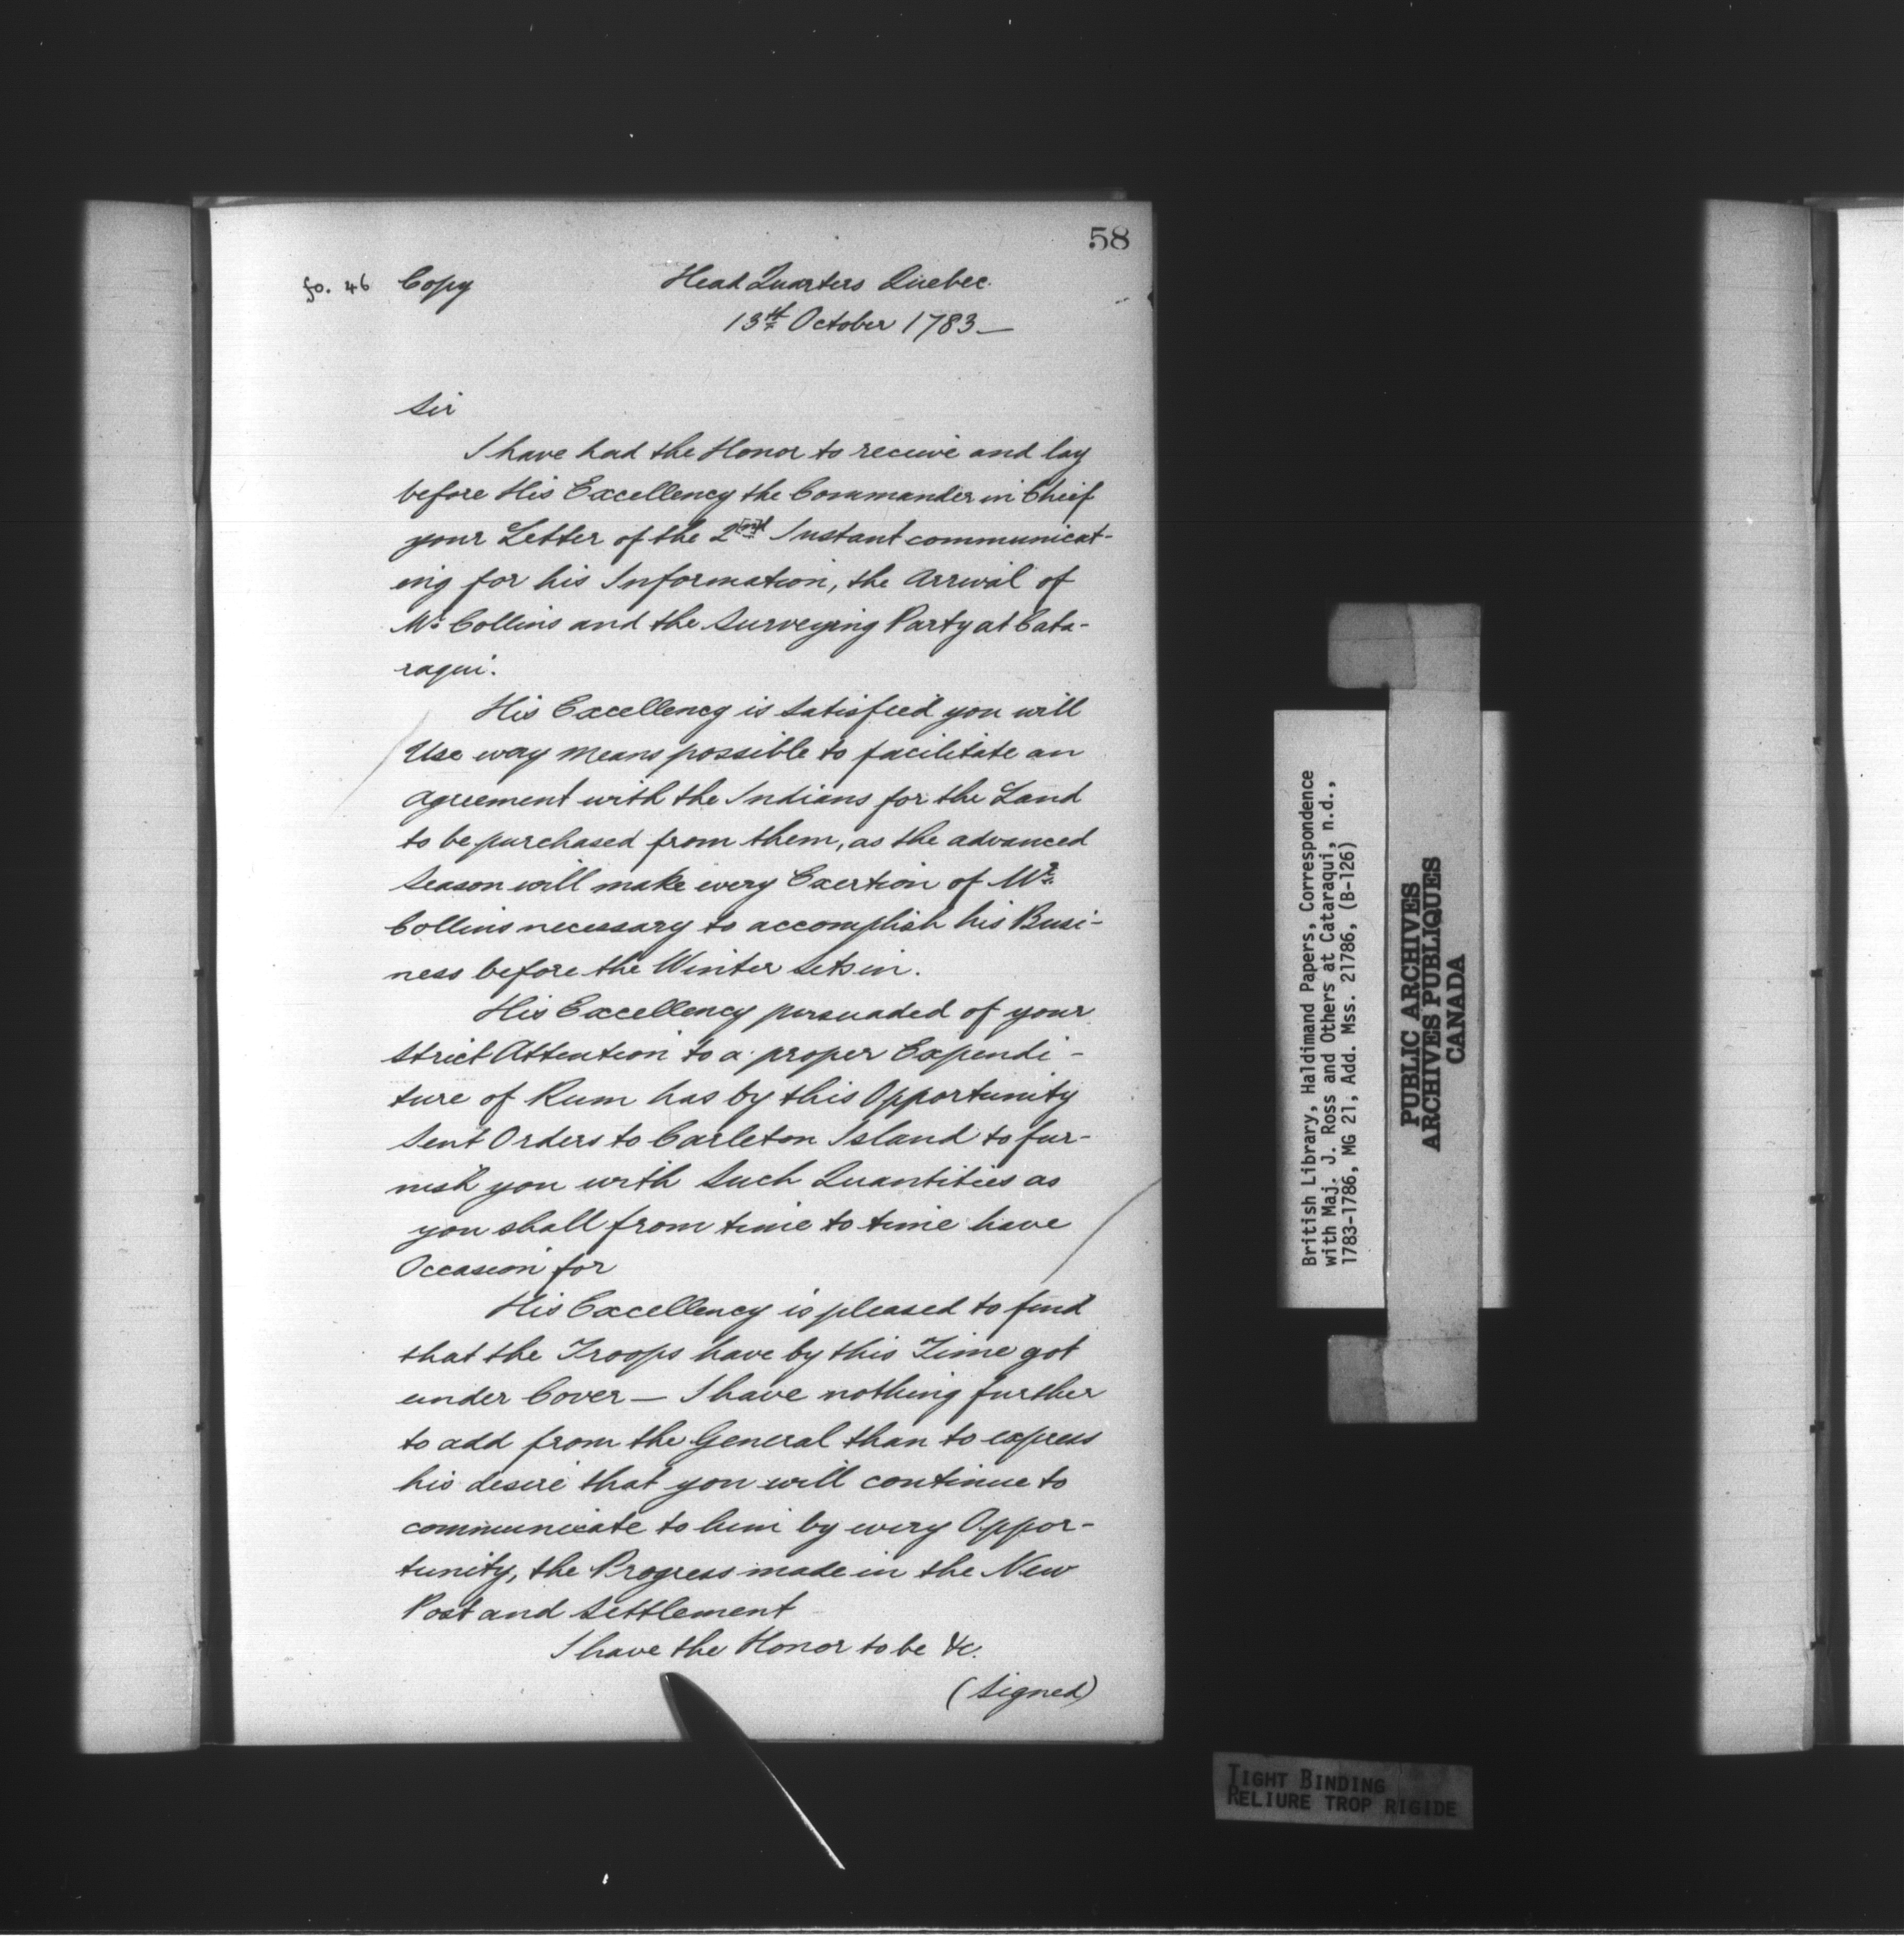 58
fo. 46 Copy Head Quarters Quebec.
13th October 1783—
Sir
I have had the Honor to receive and lay
before His Excellency the Commander in Chief
your Letter of the 2[nd] Instant communicat-
ing for his Information, the Arrival of
Mr Collins and the Surveying Party at Cata-
raqui.
His Excellency is Satisfied you will
Use every Means possible to facilitate an
Agreement with the Indians for the Land
to be purchased from them, as the advanced
Season will make every Exertion of Mr.
Collins necessary to accomplish his Busi-
ness before the Winter Sets in.
His Excellency persuaded of your
Strict Attention to a proper Expendi-
ture of Rum has by this Opportunity
Sent Orders to Carleton Island to fur-
nish you with Such Quantities as
you shall from time to time have
Occasion for
His Excellency is pleased to find
that the Troops have by this Time got
under Cover — I have nothing further
to add from the General than to express
his desire that you will continue to
communicate to him by every Oppor-
tunity, the Progress made in the New
Post and Settlement
I have the Honor to be &c.
(Signed)
British Library, Haldimand Papers, Correspondence
with Maj. J. Ross and Others at Cataraqui, n.d.,
1783-1786, MG 21, Add. Mss. 21786, (B-126)
PUBLIC ARCHIVES
ARCHIVES PUBLIQUES
CANADA
TIGHT BINDING
RELIURE TROP RIGIDE